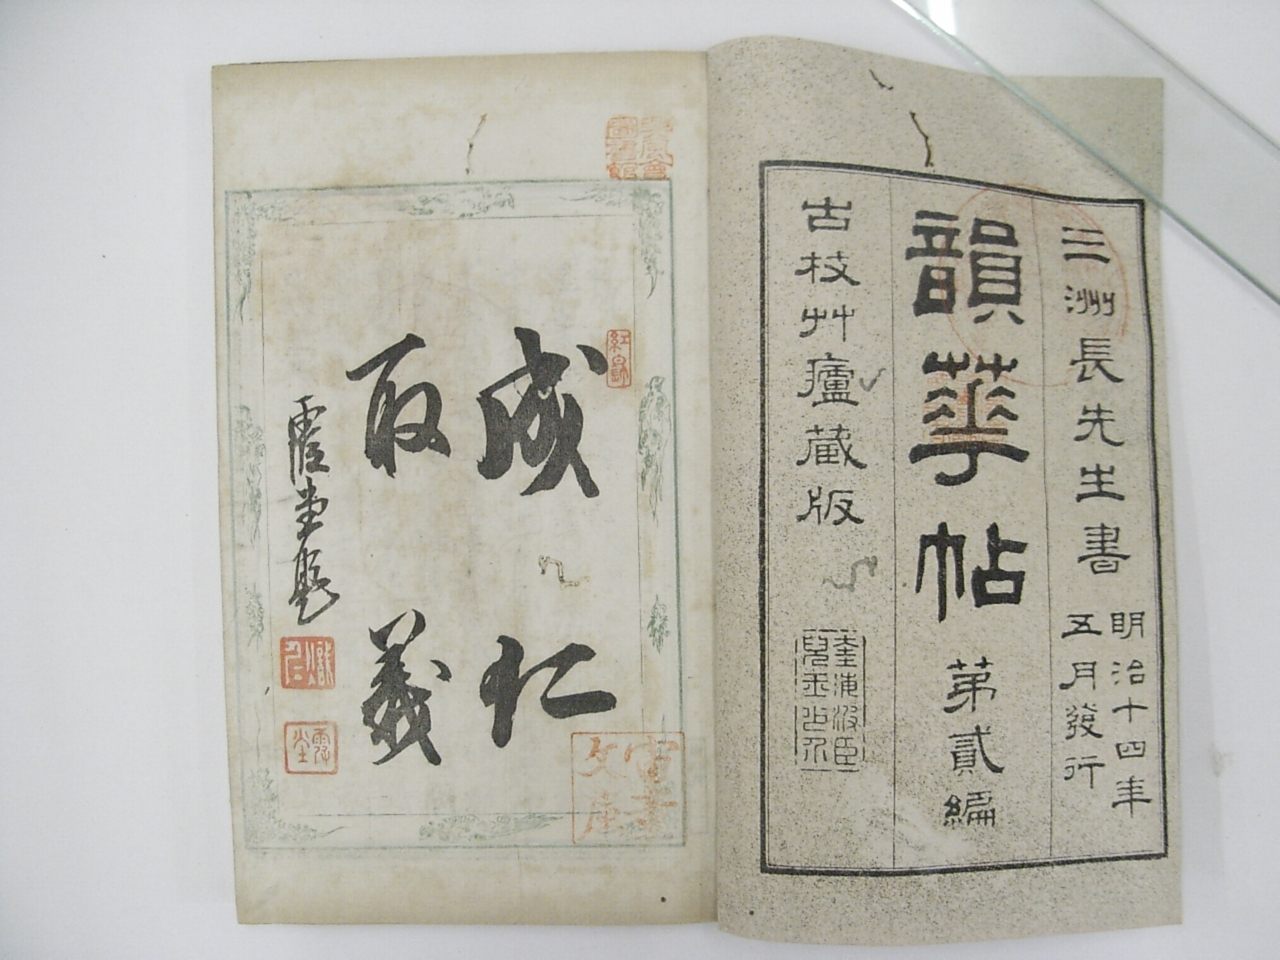 三洲長先生書
明治十四年
五月發行
韻華帖
第貳編
古枝艸廬蔵版
成仁
取義
霞堂題